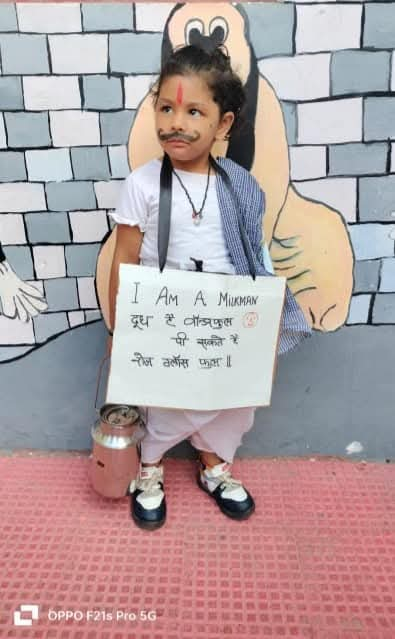 I AM A MILKMAN
दूध है वॉन्डरफुल
पी सकते है
रोज ग्लॉस फुल ॥
OPPO F21s Pro 5G